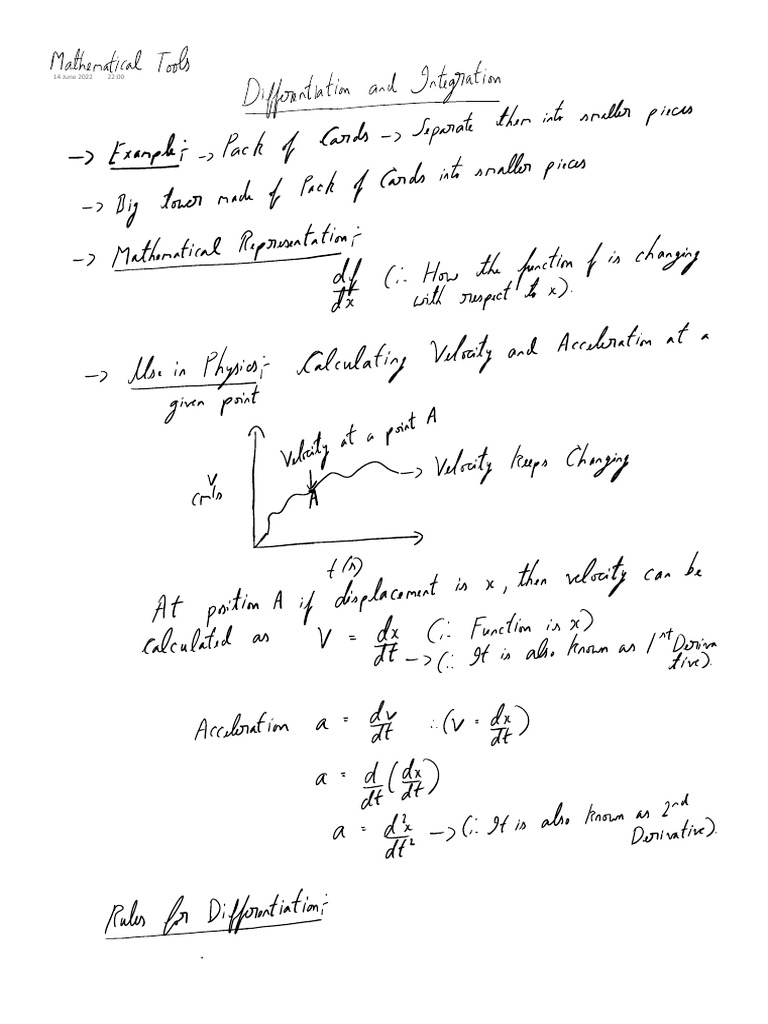 Mathematical Tools
14 June 2022 22:00
Differentiation and Integration
-> Example:- -> Pack of Cards -> Separate them into smaller pieces
-> Big tower made of Pack of Cards into smaller pieces
-> Mathematical Representation:-
df/dx (∵ How the function f is changing
with respect to x).
-> Use in Physics:- Calculating Velocity and Acceleration at a
given point
Velocity at a point A
-> Velocity keeps Changing
V
(m/s
A
t(s)
At position A if displacement is x, then velocity can be
calculated as V = dx/dt (∵ Function is x)
-> (∵ It is also known as 1st Deriva
tive).
Acceleration a = dv/dt ∴(V = dx/dt)
a = d/dt (dx/dt)
a = d²x/dt² -> (∵ It is also known as 2nd
Derivative).
Rules for Differentiation:-